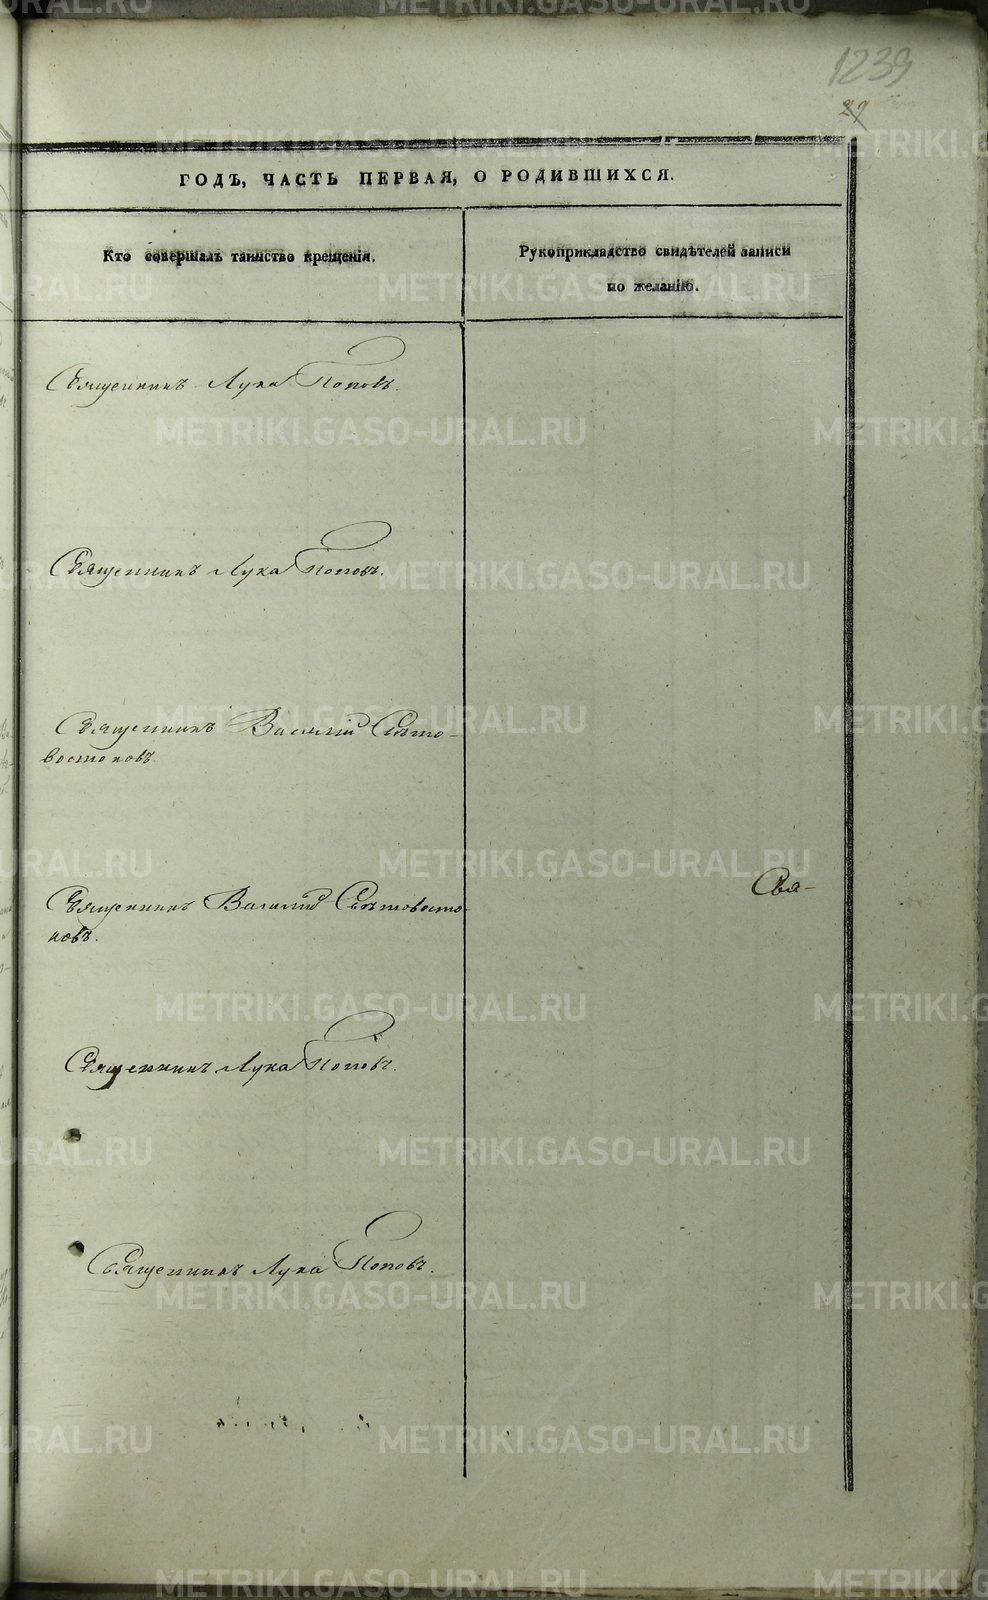 1239
27
ГОДЪ, ЧАСТЬ ПЕРВАЯ, О РОДИВШИХСЯ.
Кто совершалъ таинство крещенія.
Рукоприкладство свидѣтелей записи
по желанію.
Священникъ Лука Поповъ.
Священникъ Лука Поповъ.
Священникъ Василій Свѣто-
востоковъ
Свя-
Священникъ Василій Свѣтовосто-
ковъ.
Священникъ Лука Поповъ.
Священникъ Лука Поповъ.
METRIKI.GASO-URAL.RU